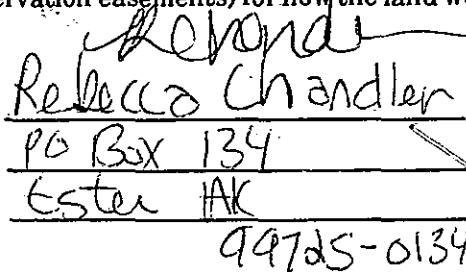 servation easements) for how the land w
Rebecca Chandler
PO Box 134
Ester AK
99725-0134